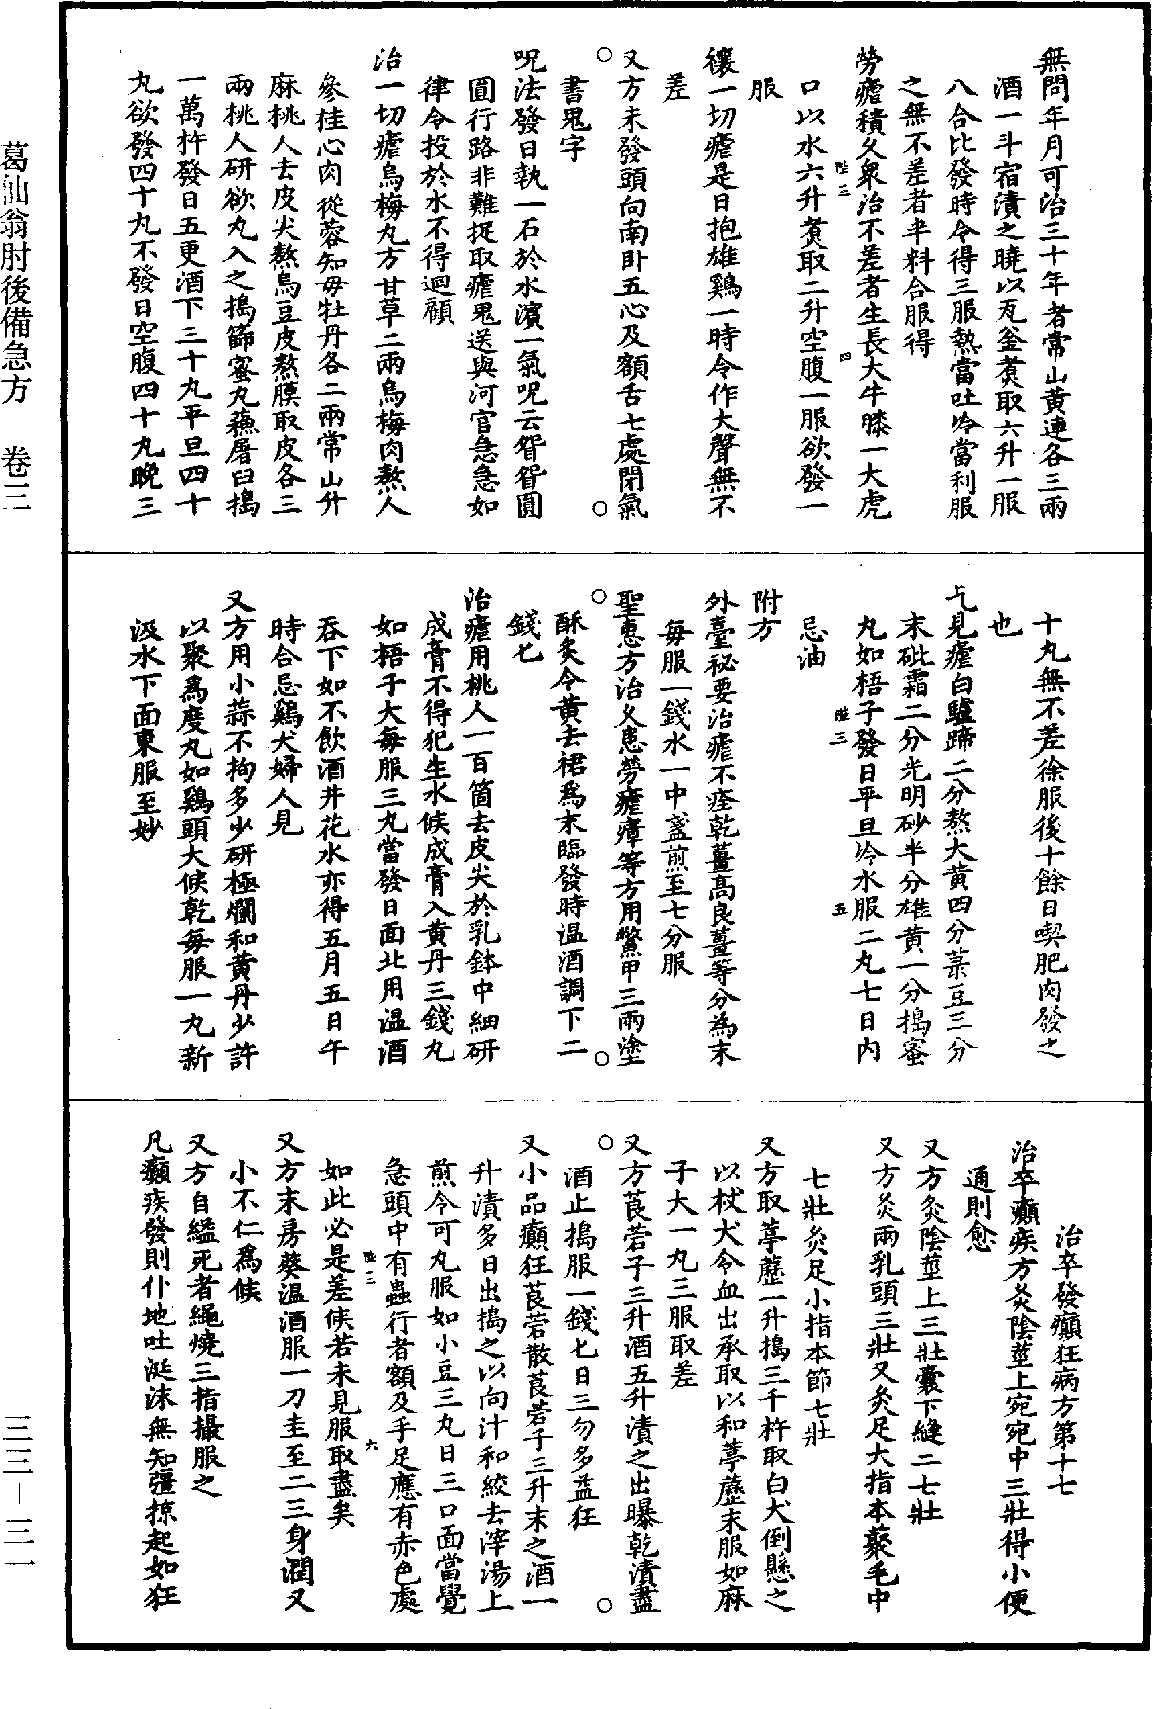 無問年月可治三十年者常山黃連各三兩
酒一斗宿漬之曉以瓦釜煑取六升一服
八合比發時令得三服熱當吐冷當利服
之無不差者半料合服得
勞瘧積久衆治不差者生長大牛膝一大虎
口以水六升煑取二升空腹一服欲發一
服
禳一切瘧是日抱雄鷄一時令作大聲無不
差
又方未發頭向南卧五心及額舌七處閉氣
書鬼字
呪法發日執一石於水濱一氣呪云眢眢圓
圓行路非難捉取瘧鬼送與河官急急如
律令投於水不得迴顧
治一切瘧烏梅丸方甘草二兩烏梅肉熬人
參桂心肉蓯蓉知母牡丹各二兩常山升
麻桃人去皮尖熬烏豆皮熬膜取皮各三
兩桃人研欲丸入之搗篩蜜丸蘓屠臼搗
一萬杵發日五更酒下三十丸平旦四十
丸欲發四十丸不發日空腹四十丸晚三
陞三
四
十丸無不差徐服後十餘日喫肥肉發之
也
凡見瘧白驢蹄二分熬大黃四分菉豆三分
末砒霜二分光明砂半分雄黃一分搗蜜
丸如梧子發日平旦冷水服二丸七日內
忌油
附方
外臺祕要治瘧不痊乾薑高良薑等分為末
每服一錢水一中盞煎至七分服
聖惠方治久患勞瘧瘴等方用鱉甲三兩塗
酥炙令黃去裙為末臨發時温酒調下二
錢匕
治瘧用桃人一百箇去皮尖於乳鉢中細研
成膏不得犯生水候成膏入黃丹三錢丸
如梧子大每服三丸當發日面北用温酒
吞下如不飲酒井花水亦得五月五日午
時合忌鷄犬婦人見
又方用小蒜不拘多少研極爛和黃丹少許
以聚為度丸如鷄頭大候乾每服一丸新
汲水下面東服至妙
陞三
五
治卒發癲狂病方第十七
治卒癲疾方灸陰莖上宛宛中三壯得小便
通則愈
又方灸陰莖上三壯囊下縫二七壯
又方灸兩乳頭三壯又灸足大指本藂毛中
七壯灸足小指本節七壯
又方取葶藶一升搗三千杵取白犬倒懸之
以杖犬令血出承取以和葶藶末服如麻
子大一丸三服取差
又方莨菪子三升酒五升漬之出曝乾漬盡
酒止搗服一錢匕日三勿多益狂
又小品癲狂莨菪散莨菪子三升末之酒一
升漬多日出搗之以向汁和絞去滓湯上
煎令可丸服如小豆三丸日三口面當覺
急頭中有蟲行者額及手足應有赤色處
如此必是差候若未見服取盡矣
又方末房葵温酒服一刀圭至二三身潤又
小不仁為候
又方自縊死者繩燒三指撮服之
凡癲疾發則仆地吐涎沫無知彊掠起如狂
陞三
六
葛仙翁肘後備急方　卷三
三三—三一